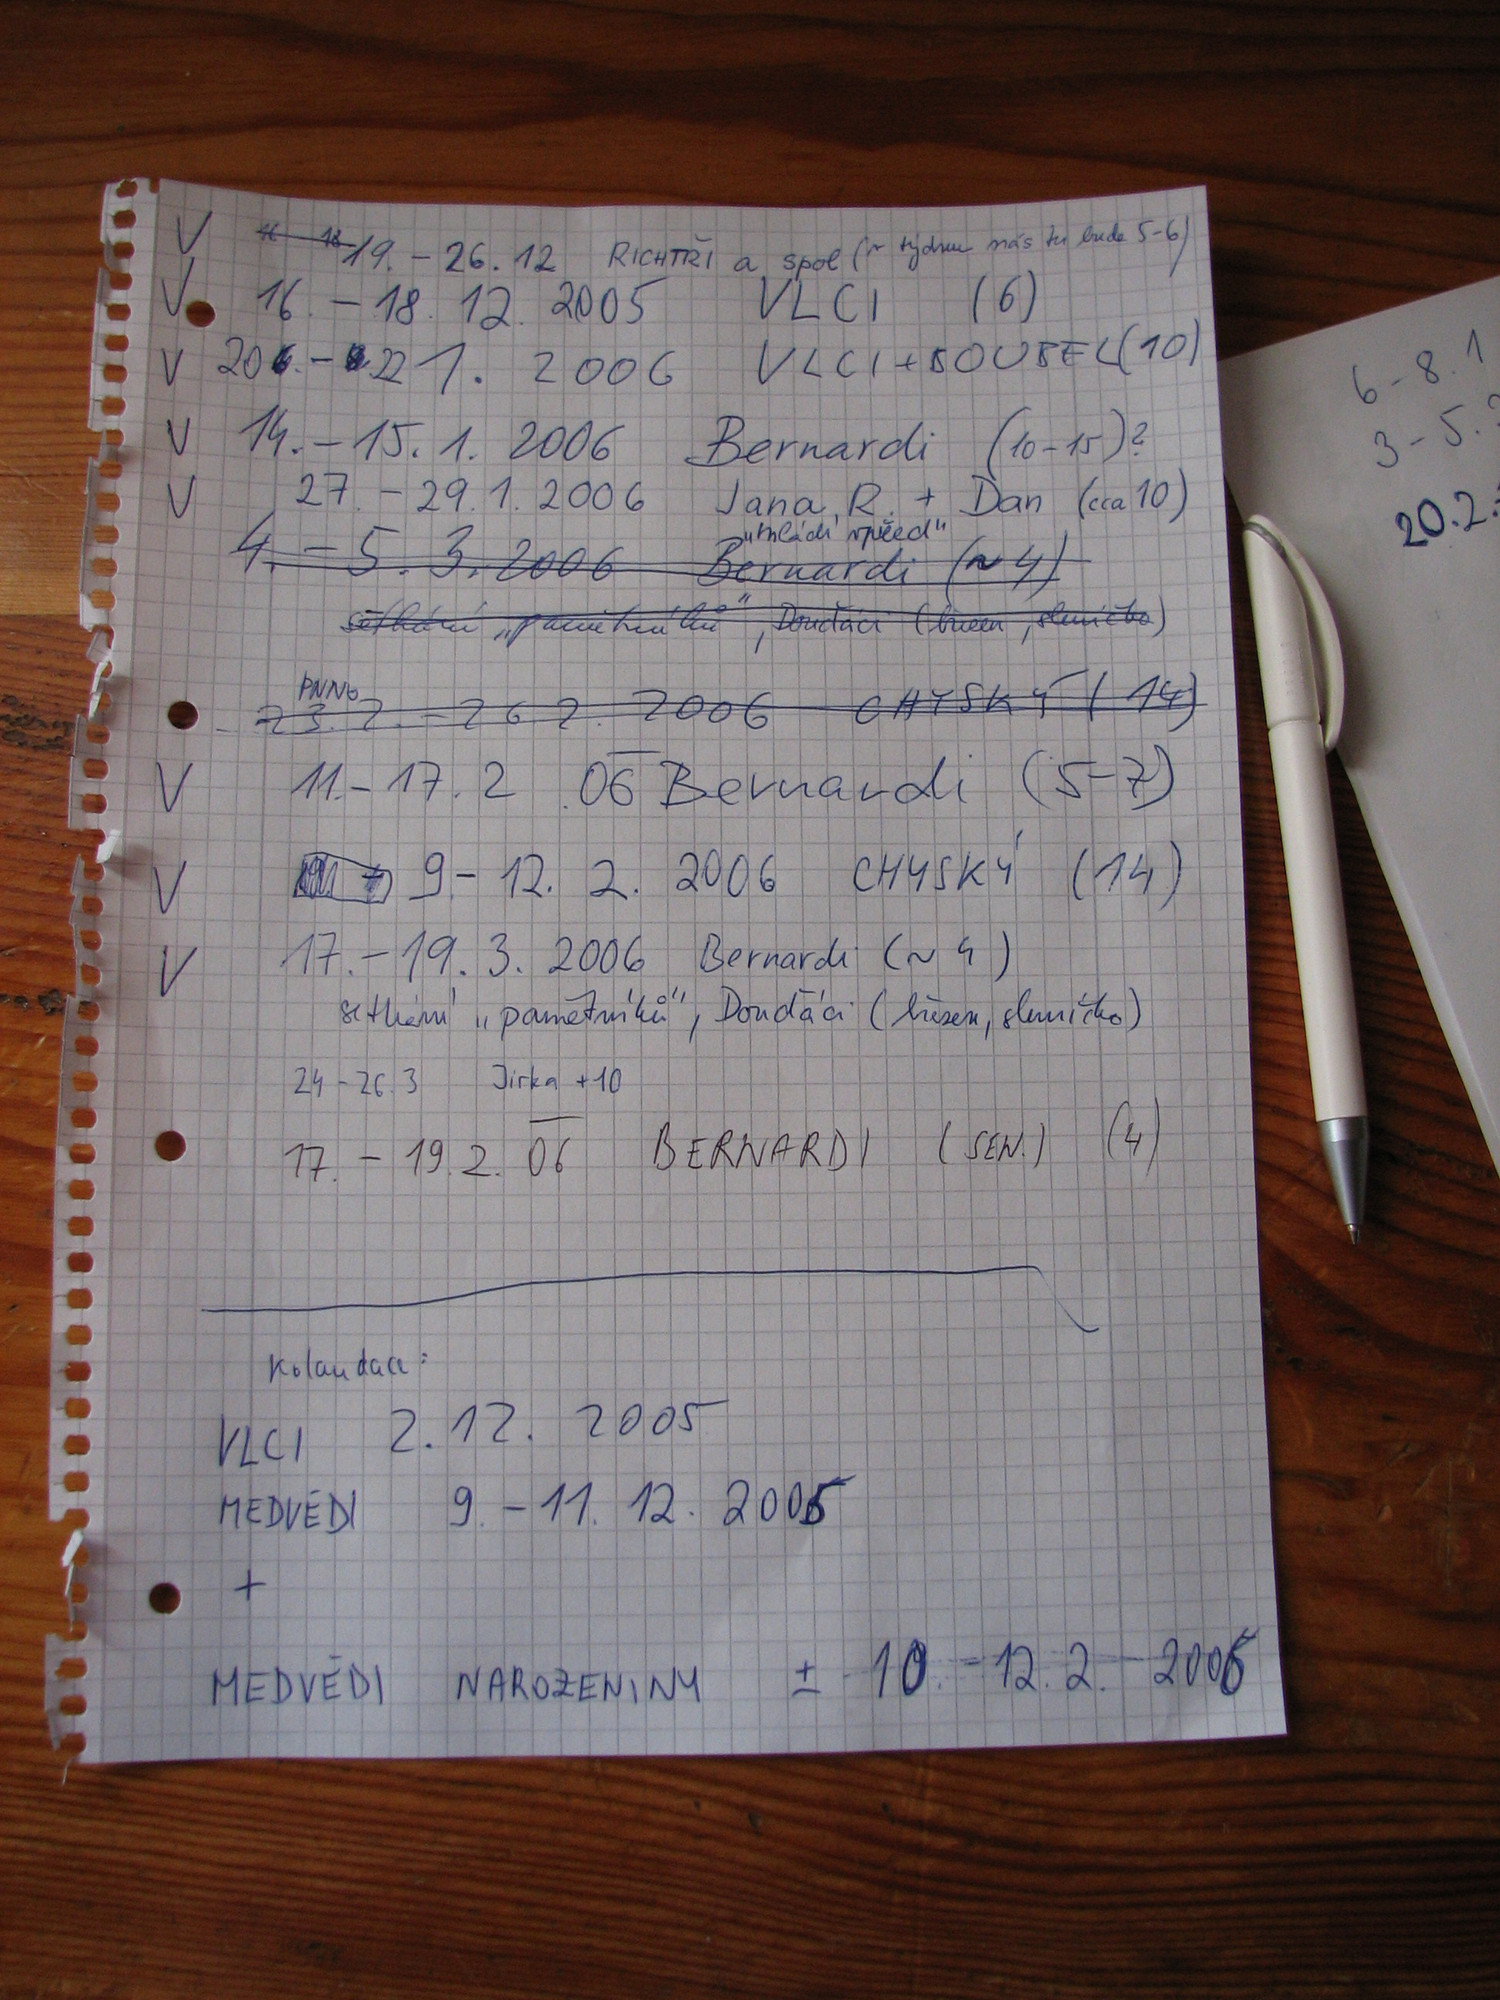 V 16 - 18 19. - 26.12 RICHTŘI a spol (v týdnu nás tu bude 5-6)
V 16. - 18. 12. 2005 VLCI (6)
V 20. - 22 1. 2006 VLCI + BOUBEL (10)
V 14. - 15. 1. 2006 Bernardi (10-15)?
V 27. - 29.1.2006 Jana R. + Dan (cca 10)
"mládí vpřed"
4. - 5. 3. 2006 Bernardi (~4)
setkání "pamětníků", Douďáci (březen, sluníčko)
23. 2. - 26 2. 2006 CHYSKÝ (14)
V 11. - 17. 2 06 Bernardi (5-7)
V 9 - 12. 2. 2006 CHYSKÝ (14)
V 17. - 19. 3. 2006 Bernardi (~4)
setkání "pamětníků", Douďáci (březen, sluníčko)
24 - 26.3 Jirka +10
17. - 19. 2. 06 BERNARDI (SEN.) (4)
Kolaudace:
VLCI 2. 12. 2005
MEDVĚDI 9. - 11. 12. 2005
+
MEDVĚDI NAROZENINY ± 10. - 12. 2. - 2006
6 - 8. 1
3 - 5.
20.2.